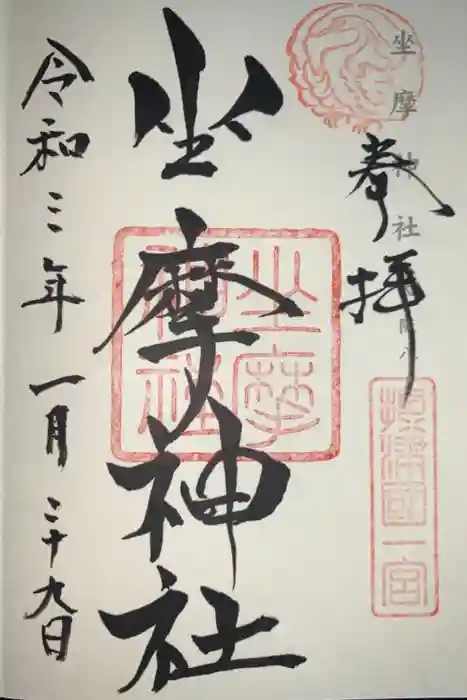 奉拝
坐摩神社
摂津國一宮
坐摩神社
坐摩神社
令和三年一月二十九日